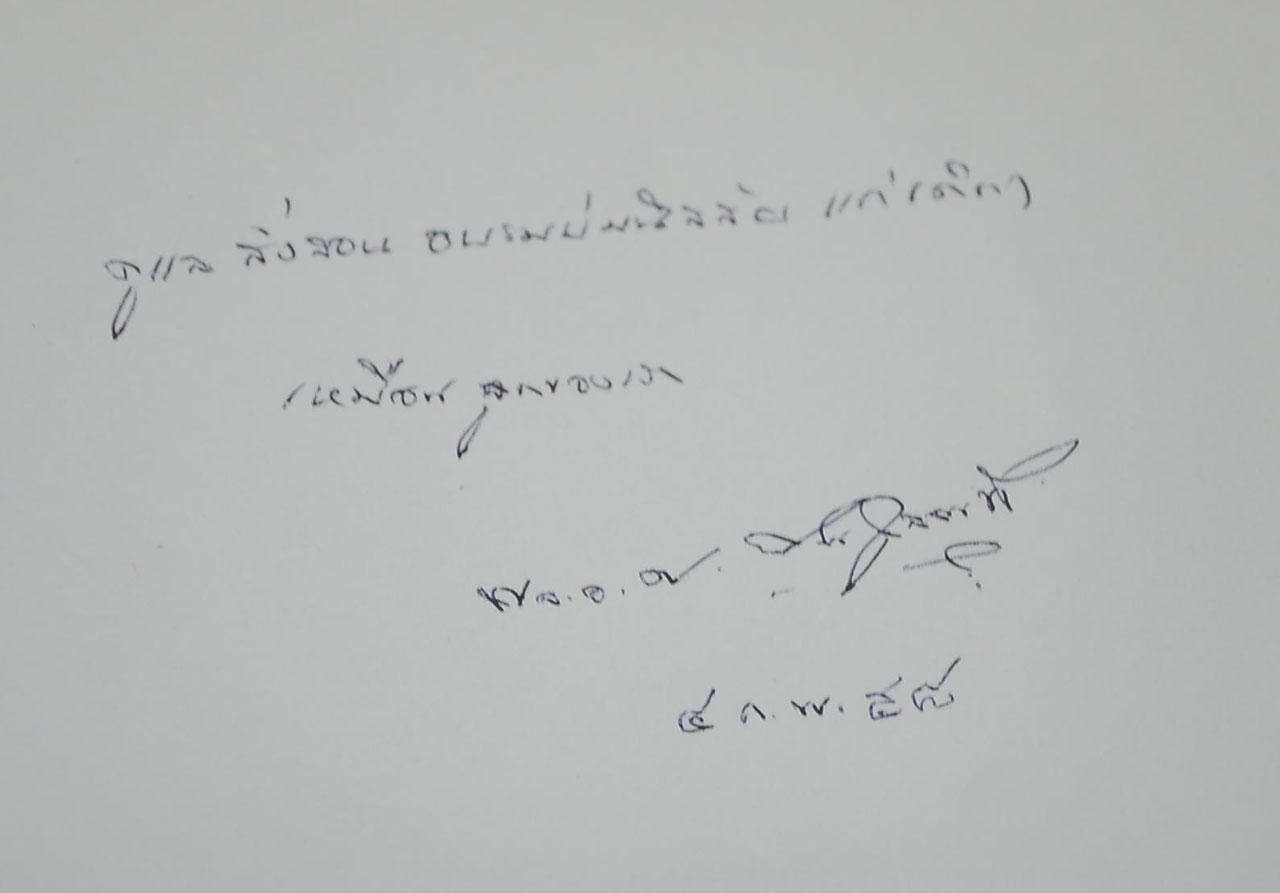 ดูแล สั่งสอน อบรมบ่มนิสสัย แก่เด็กๆ
เหมือน ลูกของเรา
พล.อ.
๔ ก.พ. ๕๘